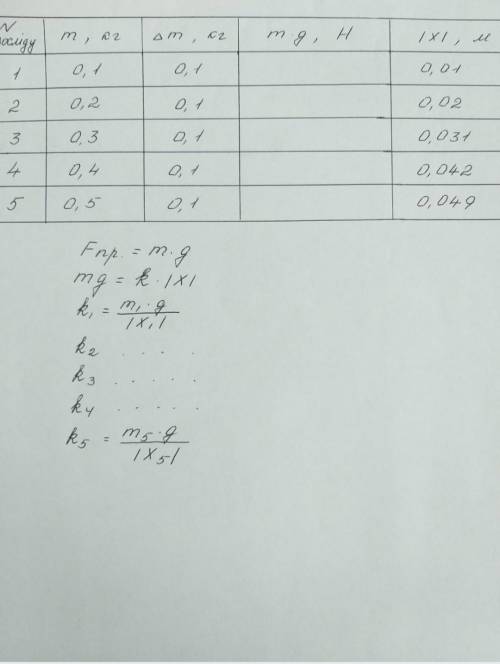 N досліду | m, кг | Δm, кг | m·g, Н | |x|, м
1 | 0,1 | 0,1 | | 0,01
2 | 0,2 | 0,1 | | 0,02
3 | 0,3 | 0,1 | | 0,031
4 | 0,4 | 0,1 | | 0,042
5 | 0,5 | 0,1 | | 0,049
Fпр. = m·g
mg = k·|x|
k₁ = m₁·g / |x₁|
k₂ . . . .
k₃ . . . . .
k₄ . . . . .
k₅ = m₅·g / |x₅|